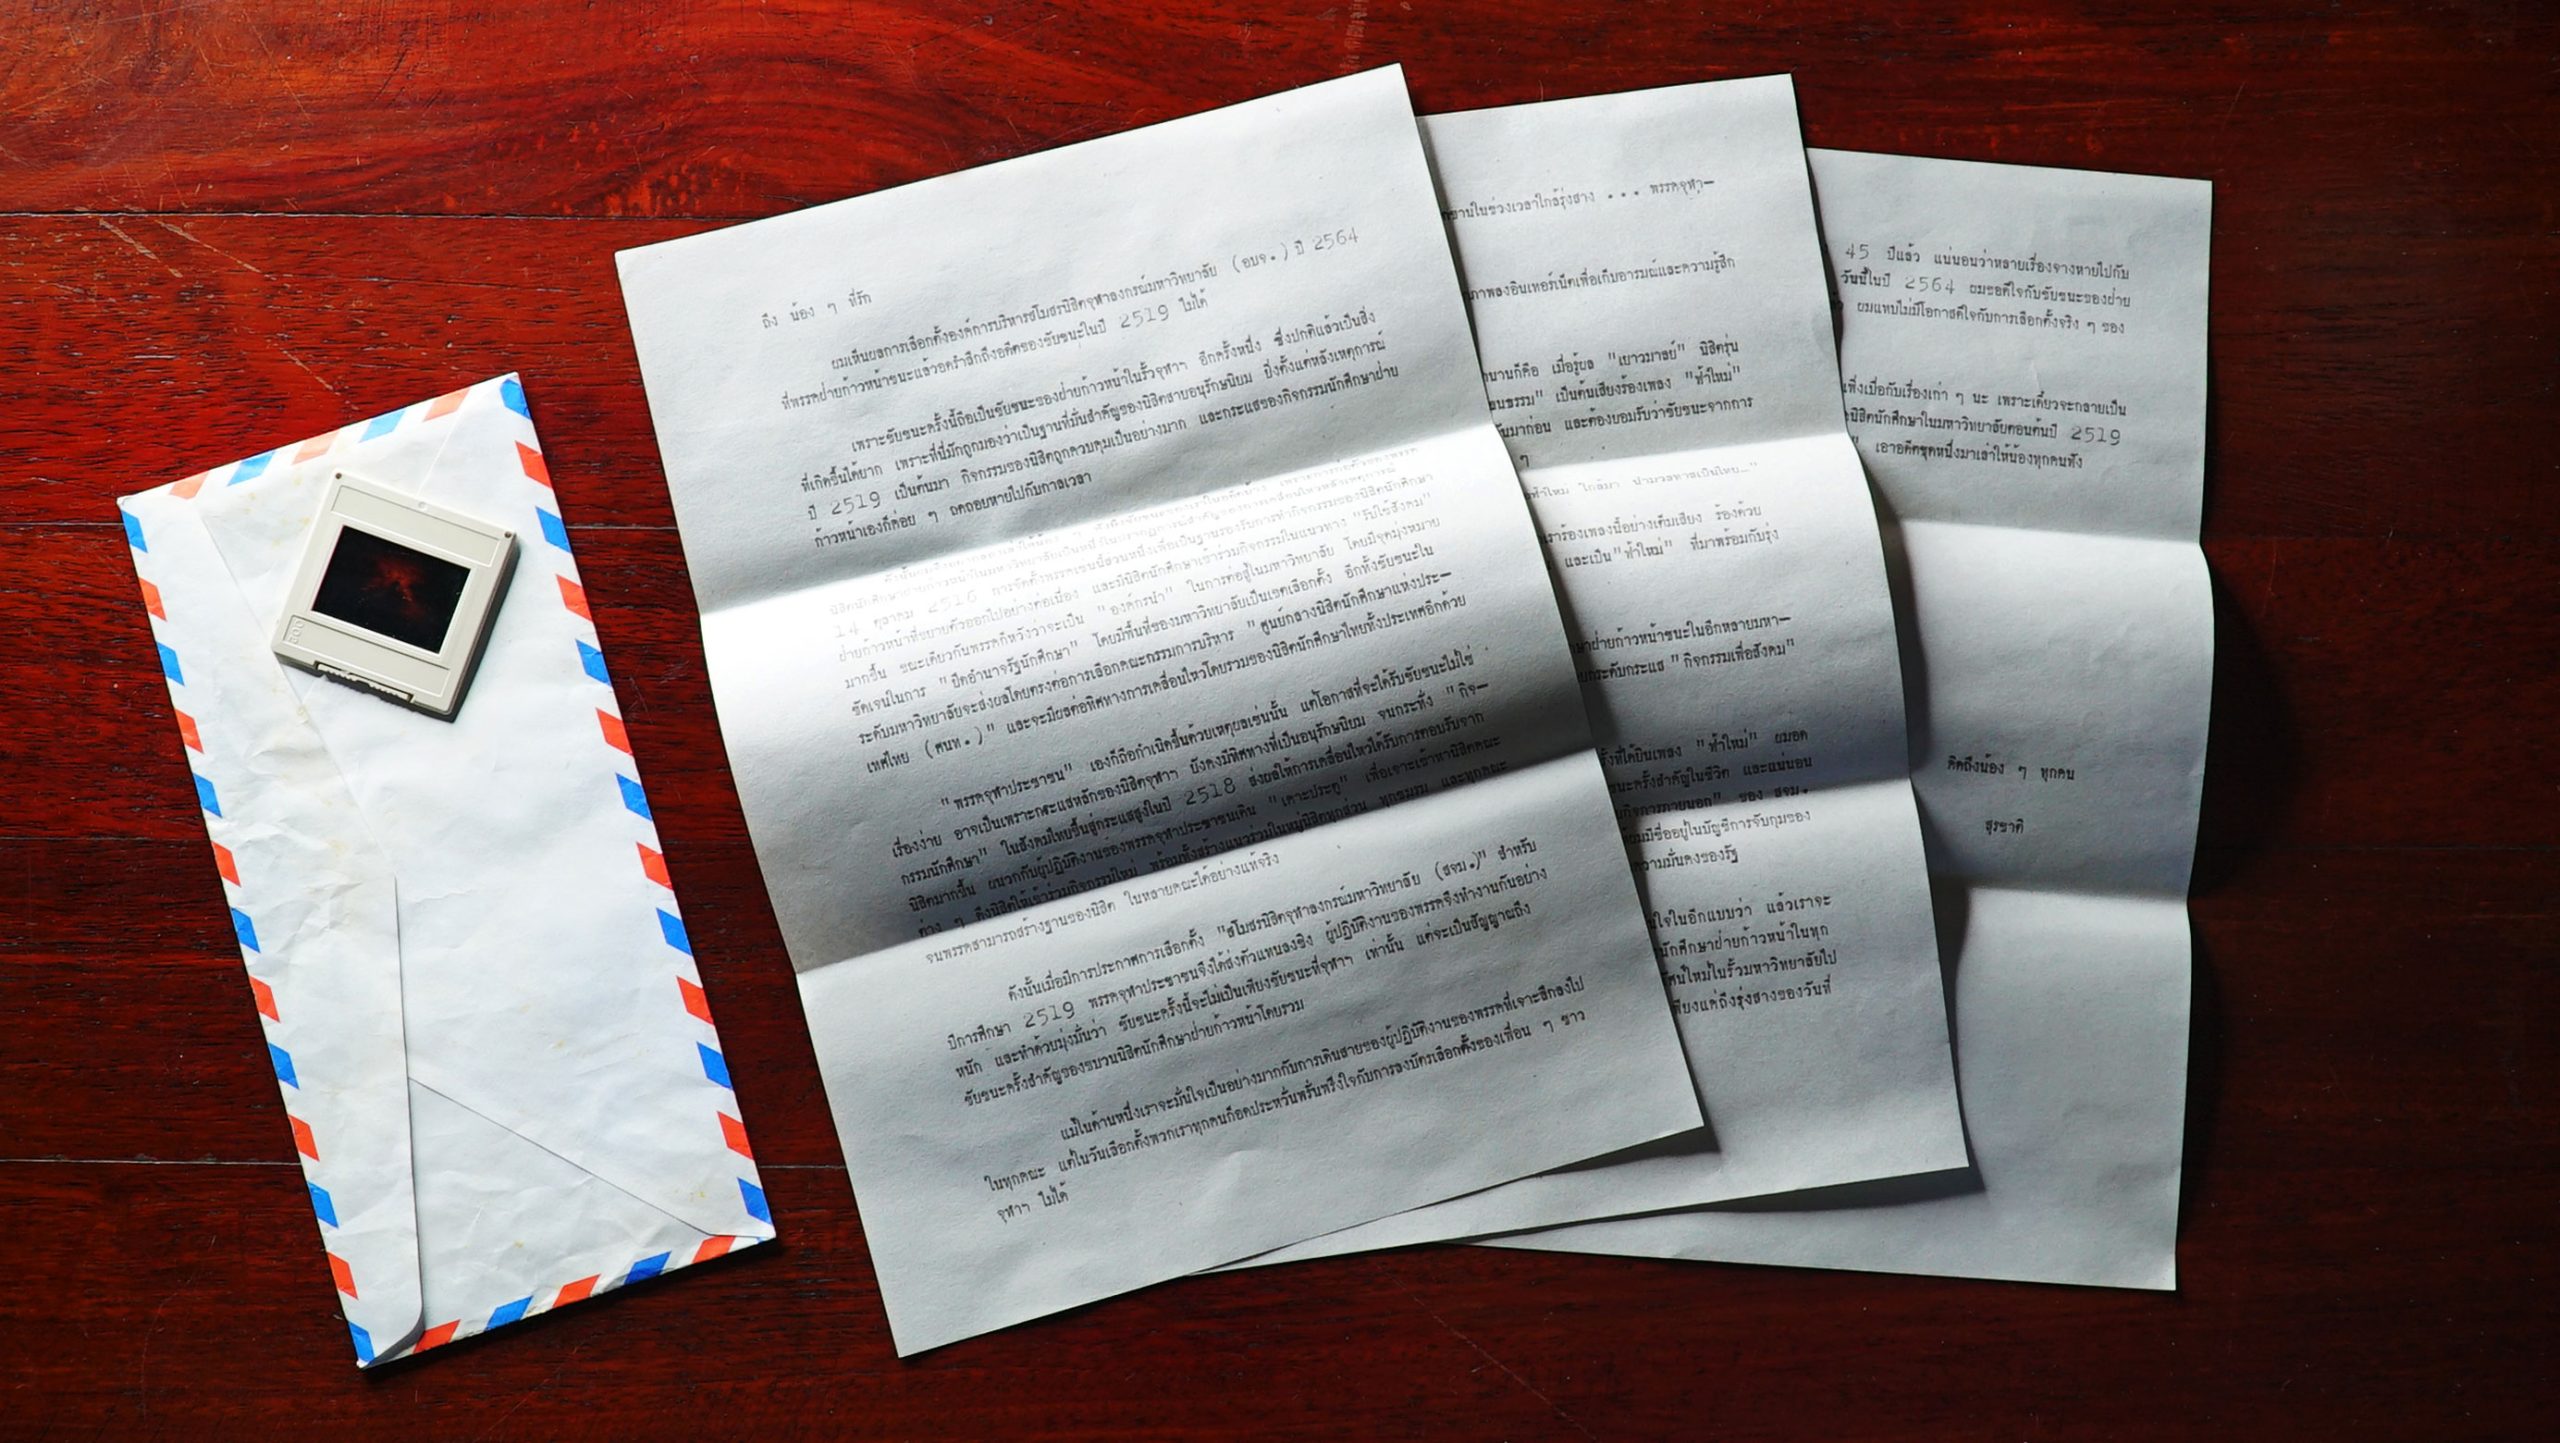 ถึง น้อง ๆ ที่รัก
ผมเห็นผลการเลือกตั้งองค์การบริหารสโมสรนิสิตจุฬาลงกรณ์มหาวิทยาลัย (อบจ.) ปี 2564
ที่พรรคฝ่ายก้าวหน้าชนะแล้วอดรำลึกถึงอดีตของชัยชนะในปี 2519 ไม่ได้
เพราะชัยชนะครั้งนี้ถือเป็นชัยชนะของฝ่ายก้าวหน้าในรั้วจุฬาฯ อีกครั้งหนึ่ง ซึ่งปกติแล้วเป็นสิ่ง
ที่เกิดขึ้นได้ยาก เพราะที่นี่มักถูกมองว่าเป็นฐานที่มั่นสำคัญของนิสิตสายอนุรักษนิยม ยิ่งตั้งแต่หลังเหตุการณ์
ปี 2519 เป็นต้นมา กิจกรรมของนิสิตถูกควบคุมเป็นอย่างมาก และกระแสของกิจกรรมนักศึกษาฝ่าย
ก้าวหน้าเองก็ค่อย ๆ ถดถอยหายไปกับกาลเวลา
นิสิตนักศึกษาฝ่ายก้าวหน้าในมหาวิทยาลัย
14 ตุลาคม 2516 การจัดตั้งพรรคเช่นนี้ส่วนหนึ่งเพื่อเป็นฐานรองรับการทำกิจกรรมของนิสิตนักศึกษา
ฝ่ายก้าวหน้าที่ขยายตัวออกไปอย่างต่อเนื่อง และมีนิสิตนักศึกษาเข้าร่วมกิจกรรมในแนวทาง "รับใช้สังคม"
มากขึ้น ขณะเดียวกันพรรคก็หวังว่าจะเป็น "องค์กรนำ" ในการต่อสู้ในมหาวิทยาลัย โดยมีจุดมุ่งหมาย
ชัดเจนในการ "ยึดอำนาจรัฐนักศึกษา" โดยมีพื้นที่ของมหาวิทยาลัยเป็นเขตเลือกตั้ง อีกทั้งชัยชนะใน
ระดับมหาวิทยาลัยจะส่งผลโดยตรงต่อการเลือกคณะกรรมการบริหาร "ศูนย์กลางนิสิตนักศึกษาแห่งประ-
เทศไทย (ศนท.)" และจะมีผลต่อทิศทางการเคลื่อนไหวโดยรวมของนิสิตนักศึกษาไทยทั้งประเทศอีกด้วย
"พรรคจุฬาประชาชน" เองก็ถือกำเนิดขึ้นด้วยเหตุผลเช่นนั้น แต่โอกาสที่จะได้รับชัยชนะไม่ใช่
เรื่องง่าย อาจเป็นเพราะกระแสหลักของนิสิตจุฬาฯ ยังคงมีทิศทางที่เป็นอนุรักษนิยม จนกระทั่ง "กิจ-
กรรมนักศึกษา" ในสังคมไทยขึ้นสู่กระแสสูงในปี 2518 ส่งผลให้การเคลื่อนไหวได้รับการตอบรับจาก
นิสิตมากขึ้น ผนวกกับผู้ปฏิบัติงานของพรรคจุฬาประชาชนเดิน "เคาะประตู" เพื่อเจาะเข้าหานิสิตคณะ
ต่าง ๆ ดึงนิสิตให้เข้าร่วมกิจกรรมใหม่ พร้อมทั้งสร้างแนวร่วมในหมู่นิสิตทุกส่วน ทุกชมรม และทุกคณะ
จนพรรคสามารถสร้างฐานของนิสิต ในหลายคณะได้อย่างแท้จริง
ดังนั้นเมื่อมีการประกาศการเลือกตั้ง "สโมสรนิสิตจุฬาลงกรณ์มหาวิทยาลัย (สจม.)" สำหรับ
ปีการศึกษา 2519 พรรคจุฬาประชาชนจึงได้ส่งตัวแทนลงชิง ผู้ปฏิบัติงานของพรรคจึงทำงานกันอย่าง
หนัก และทำด้วยมุ่งมั่นว่า ชัยชนะครั้งนี้จะไม่เป็นเพียงชัยชนะที่จุฬาฯ เท่านั้น แต่จะเป็นสัญญาณถึง
ชัยชนะครั้งสำคัญของขบวนนิสิตนักศึกษาฝ่ายก้าวหน้าโดยรวม
แม้ในด้านหนึ่งเราจะมั่นใจเป็นอย่างมากกับการเดินสายของผู้ปฏิบัติงานของพรรคที่เจาะลึกลงไป
ในทุกคณะ แต่ในวันเลือกตั้งพวกเราทุกคนก็อดประหวั่นพรั่นพรึงใจกับการลงบัตรเลือกตั้งของเพื่อน ๆ ชาว
จุฬาฯ ไม่ได้
ในช่วงเวลาใกล้รุ่งสาง ... พรรคจุฬา-
ภาพลงอินเทอร์เน็ตเพื่อเก็บอารมณ์และความรู้สึก
นานก็คือ เมื่อรู้ผล "เยาวมาลย์" นิสิตรุ่น
เป็นต้นเสียงร้องเพลง "ฟ้าใหม่"
กันมาก่อน และต้องยอมรับว่าชัยชนะจากการ
ๆ
ฟ้าใหม่ ใกล้มา นำมวลทาสเป็นไทย..."
เราร้องเพลงนี้อย่างเต็มเสียง ร้องด้วย
และเป็น "ฟ้าใหม่" ที่มาพร้อมกับรุ่ง
ฝ่ายก้าวหน้าชนะในอีกหลายมหา-
ยกระดับกระแส "กิจกรรมเพื่อสังคม"
ครั้งที่ได้ยินเพลง "ฟ้าใหม่" ผมอด
ชนะครั้งสำคัญในชีวิต และแน่นอน
กิจการภายนอก" ของ สจม.
ผมมีชื่ออยู่ในบัญชีการจับกุมของ
ความมั่นคงของรัฐ
ใจในอีกแบบว่า แล้วเราจะ
นักศึกษาฝ่ายก้าวหน้าในทุก
ใหม่ในรั้วมหาวิทยาลัยไป
เพียงแค่ถึงรุ่งสางของวันที่
45 ปีแล้ว แน่นอนว่าหลายเรื่องจางหายไปกับ
วันนี้ในปี 2564 ผมขอดีใจกับชัยชนะของฝ่าย
ผมแทบไม่มีโอกาสดีใจกับการเลือกตั้งจริง ๆ ของ
เพิ่งเบื่อกับเรื่องเก่า ๆ นะ เพราะเดี๋ยวจะกลายเป็น
นิสิตนักศึกษาในมหาวิทยาลัยตอนต้นปี 2519
" เอาอดีตชุดหนึ่งมาเล่าให้น้องทุกคนฟัง
คิดถึงน้อง ๆ ทุกคน
สุรชาติ